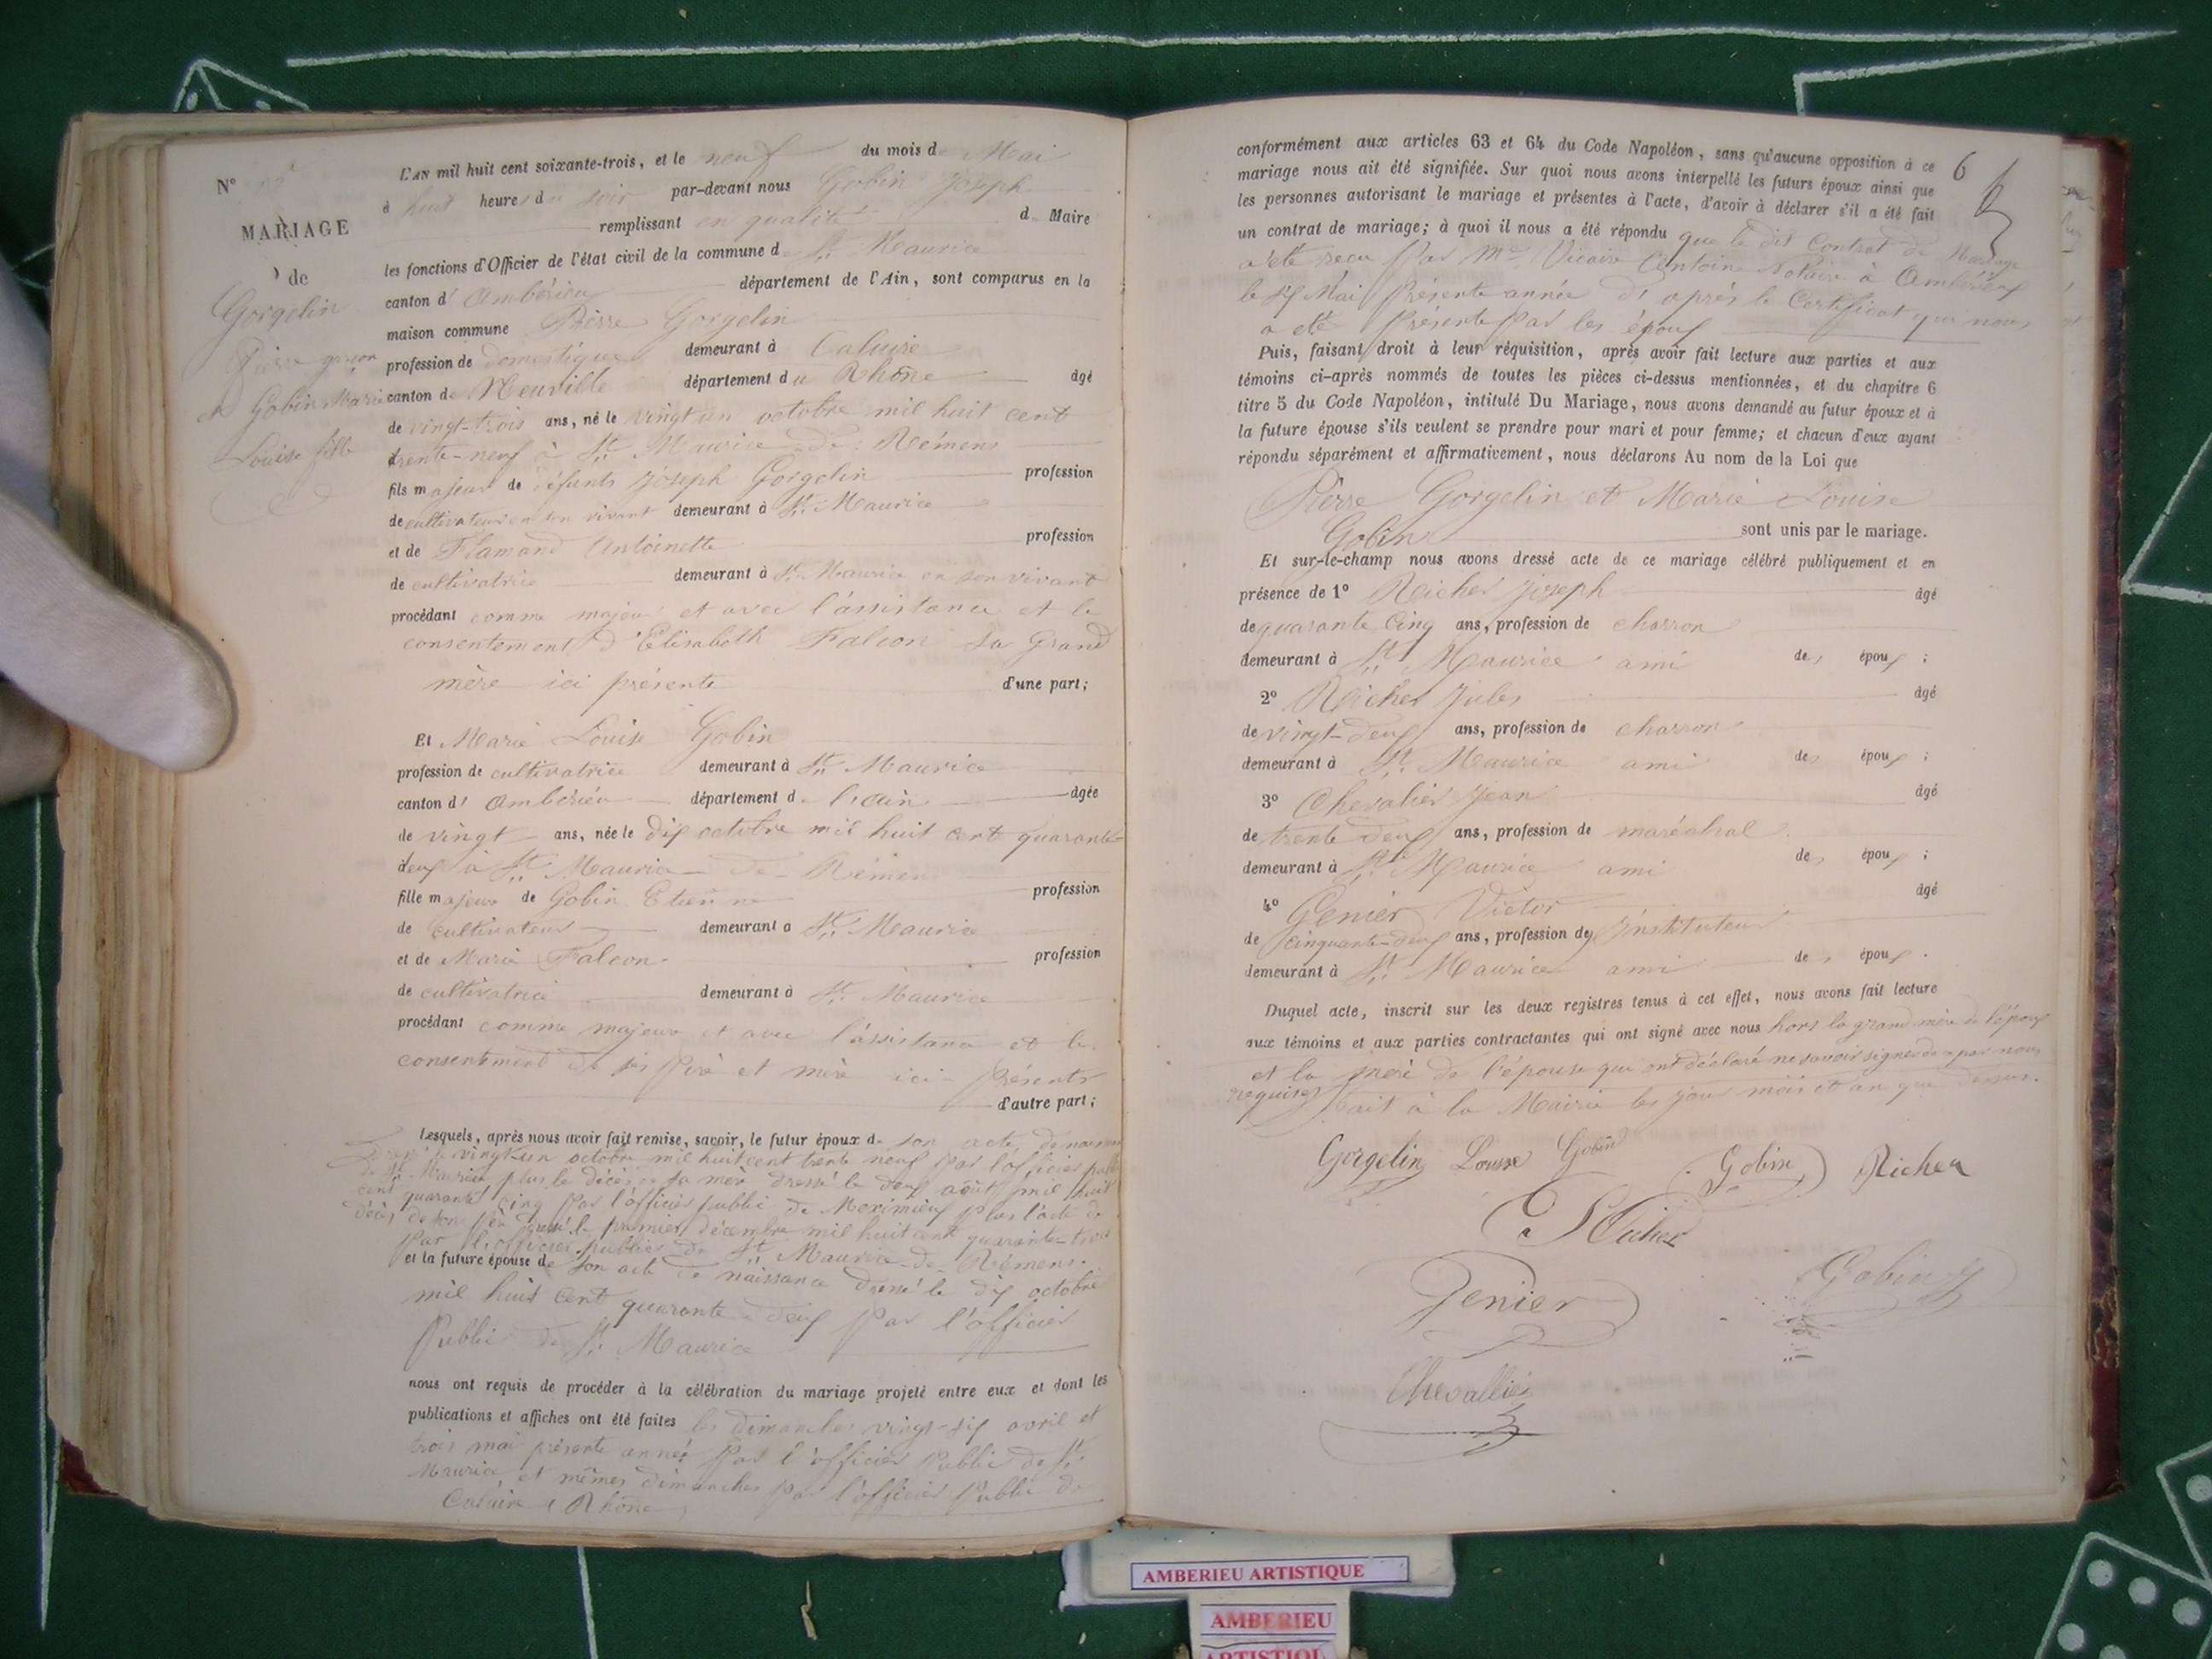 L'AN mil huit cent soixante-trois, et le neuf du mois d Mai
à huit heures du soir par-devant nous Gobin Joseph
remplissant en qualité d Maire
les fonctions d'Officier de l'état civil de la commune d St Maurice
canton d' Ambérieu département de l'Ain, sont comparus en la
maison commune Pierre Gorgelin
profession de domestique demeurant à Caluire
canton de Neuville département du Rhône âgé
de vingt-trois ans, né le vingt un octobre mil huit cent
trente-neuf à St Maurice de Rémens
fils majeur de défunts Joseph Gorgelin profession
de cultivateur en son vivant demeurant à St Maurice
et de Flamand Antoinette profession
de cultivatrice demeurant à St Maurice en son vivant
procédant comme majeur et avec l'assistance et le
consentement d'Elisabeth Falcon sa Grand
mère ici présente d'une part;
Et Marie Louise Gobin
profession de cultivatrice demeurant à St Maurice
canton d' Ambérieu département d l'ain âgée
de vingt ans, née le dix octobre mil huit cent quarante-
deux à St Maurice de Rémens
fille majeure de Gobin Etienne profession
de cultivateur demeurant à St Maurice
et de Marie Falcon profession
de cultivatrice demeurant à St Maurice
procédant comme majeure et avec l'assistance et le
consentement de ses père et mère ici présents
d'autre part;
Lesquels, après nous avoir fait remise, savoir, le futur époux de son acte de naissance
dressé le vingt-un octobre mil huit cent trente neuf par l'officier public
de St Maurice plus le décès de sa mère dressé le deux août mil huit
cent quarante cinq par l'officier public de Meximieux plus l'acte de
décès de son père dressé le premier décembre mil huit cent quarante-trois
par l'officier public de St Maurice de Rémens.
et la future épouse de son acte de naissance dressé le dix octobre
mil huit cent quarante deux par l'officier
Public de St Maurice
nous ont requis de procéder à la célébration du mariage projeté entre eux et dont les
publications et affiches ont été faites les dimanches vingt-six avril et
trois mai présente année par l'officier Public de St
Maurice et mêmes dimanches par l'officier Public de
Caluire (Rhône)
N°
MARIAGE
de
Gorgelin
Pierre garçon
et Gobin Marie
Louise fille
6
conformément aux articles 63 et 64 du Code Napoléon, sans qu'aucune opposition à ce
mariage nous ait été signifiée. Sur quoi nous avons interpellé les futurs époux ainsi que
les personnes autorisant le mariage et présentes à l'acte, d'avoir à déclarer s'il a été fait
un contrat de mariage; à quoi il nous a été répondu que le dit Contrat de Mariage
a été reçu par Me Vicaire Antoine Notaire à Ambérieux
le Mai présente année d'après le Certificat qui nous
a été présenté par les époux
Puis, faisant droit à leur réquisition, après avoir fait lecture aux parties et aux
témoins ci-après nommés de toutes les pièces ci-dessus mentionnées, et du chapitre 6
titre 5 du Code Napoléon, intitulé Du Mariage, nous avons demandé au futur époux et à
la future épouse s'ils veulent se prendre pour mari et pour femme; et chacun d'eux ayant
répondu séparément et affirmativement, nous déclarons Au nom de la Loi que
Pierre Gorgelin et Marie Louise
Gobin sont unis par le mariage.
Et sur-le-champ nous avons dressé acte de ce mariage célébré publiquement et en
présence de 1° Richer Joseph âgé
de quarante Cinq ans, profession de charron
demeurant à St Maurice ami des époux ;
2° Richer Jules âgé
de vingt-deux ans, profession de charron
demeurant à St Maurice ami des époux ;
3° Chevalier Jean âgé
de trente deux ans, profession de maréchal
demeurant à St Maurice ami des époux ;
4° Genier Victor âgé
de cinquante-deux ans, profession de Instituteur
demeurant à St Maurice ami des époux.
Duquel acte, inscrit sur les deux registres tenus à cet effet, nous avons fait lecture
aux témoins et aux parties contractantes qui ont signé avec nous hors la grand mère de l'époux
et la mère de l'épouse qui ont déclaré ne savoir signer de ce par nous
requises fait à la Mairie les jour mois et an que dessus.
Gorgelin Louise Gobin Gobin Richer
Richer
Genier Gobin
Chevallier
AMBERIEU ARTISTIQUE
AMBERIEU
ARTISTIQU